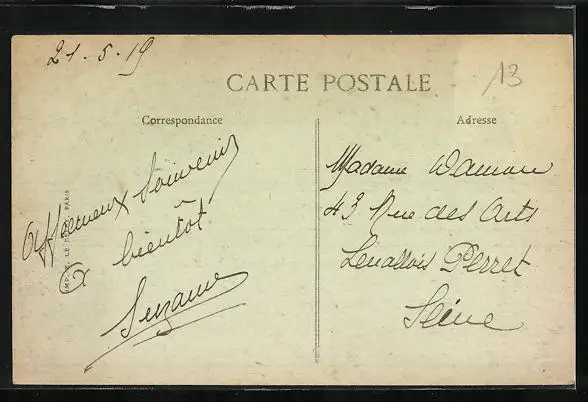 21.5.19
13
CARTE POSTALE
Correspondance
Adresse
Affectueux Souvenir
à bientôt
Suzanne
Madame
43 Rue des Arts
Levallois Perret
Seine
PARIS